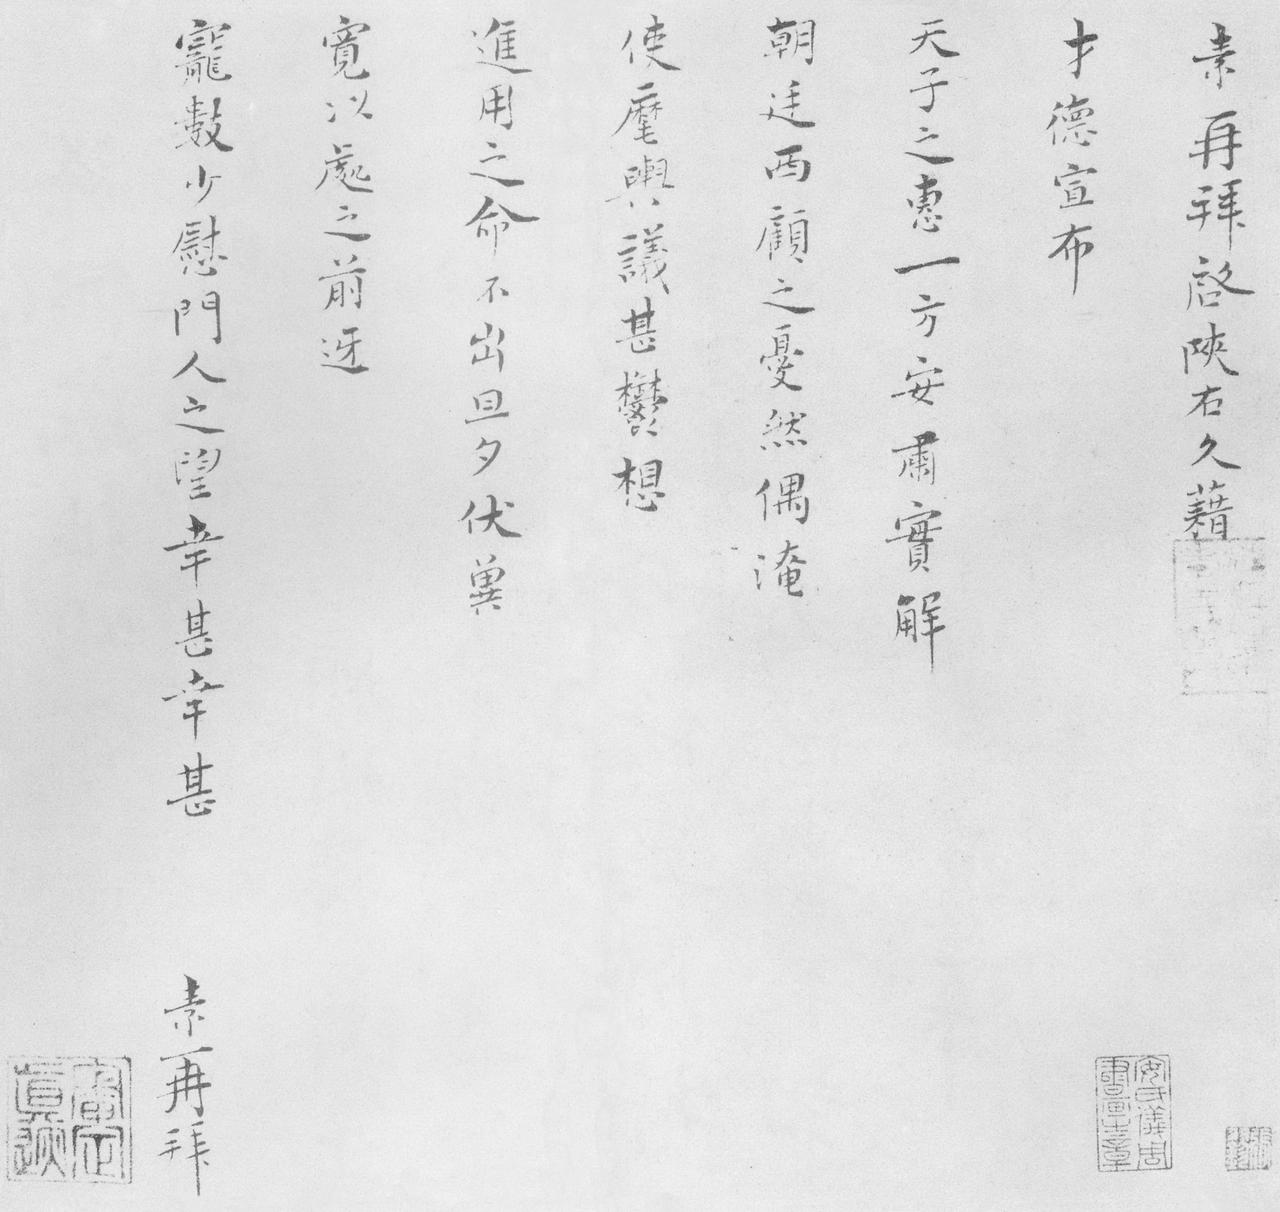 素再拜啓陝右久藉
才德宣布
天子之惠一方安肅實解
朝廷西顧之憂然偶淹
使麾輿議甚鬱想
進用之命不出旦夕伏冀
寬以處之前迓
寵數少慰門人之望幸甚幸甚
素再拜
安氏儀周書畫之章